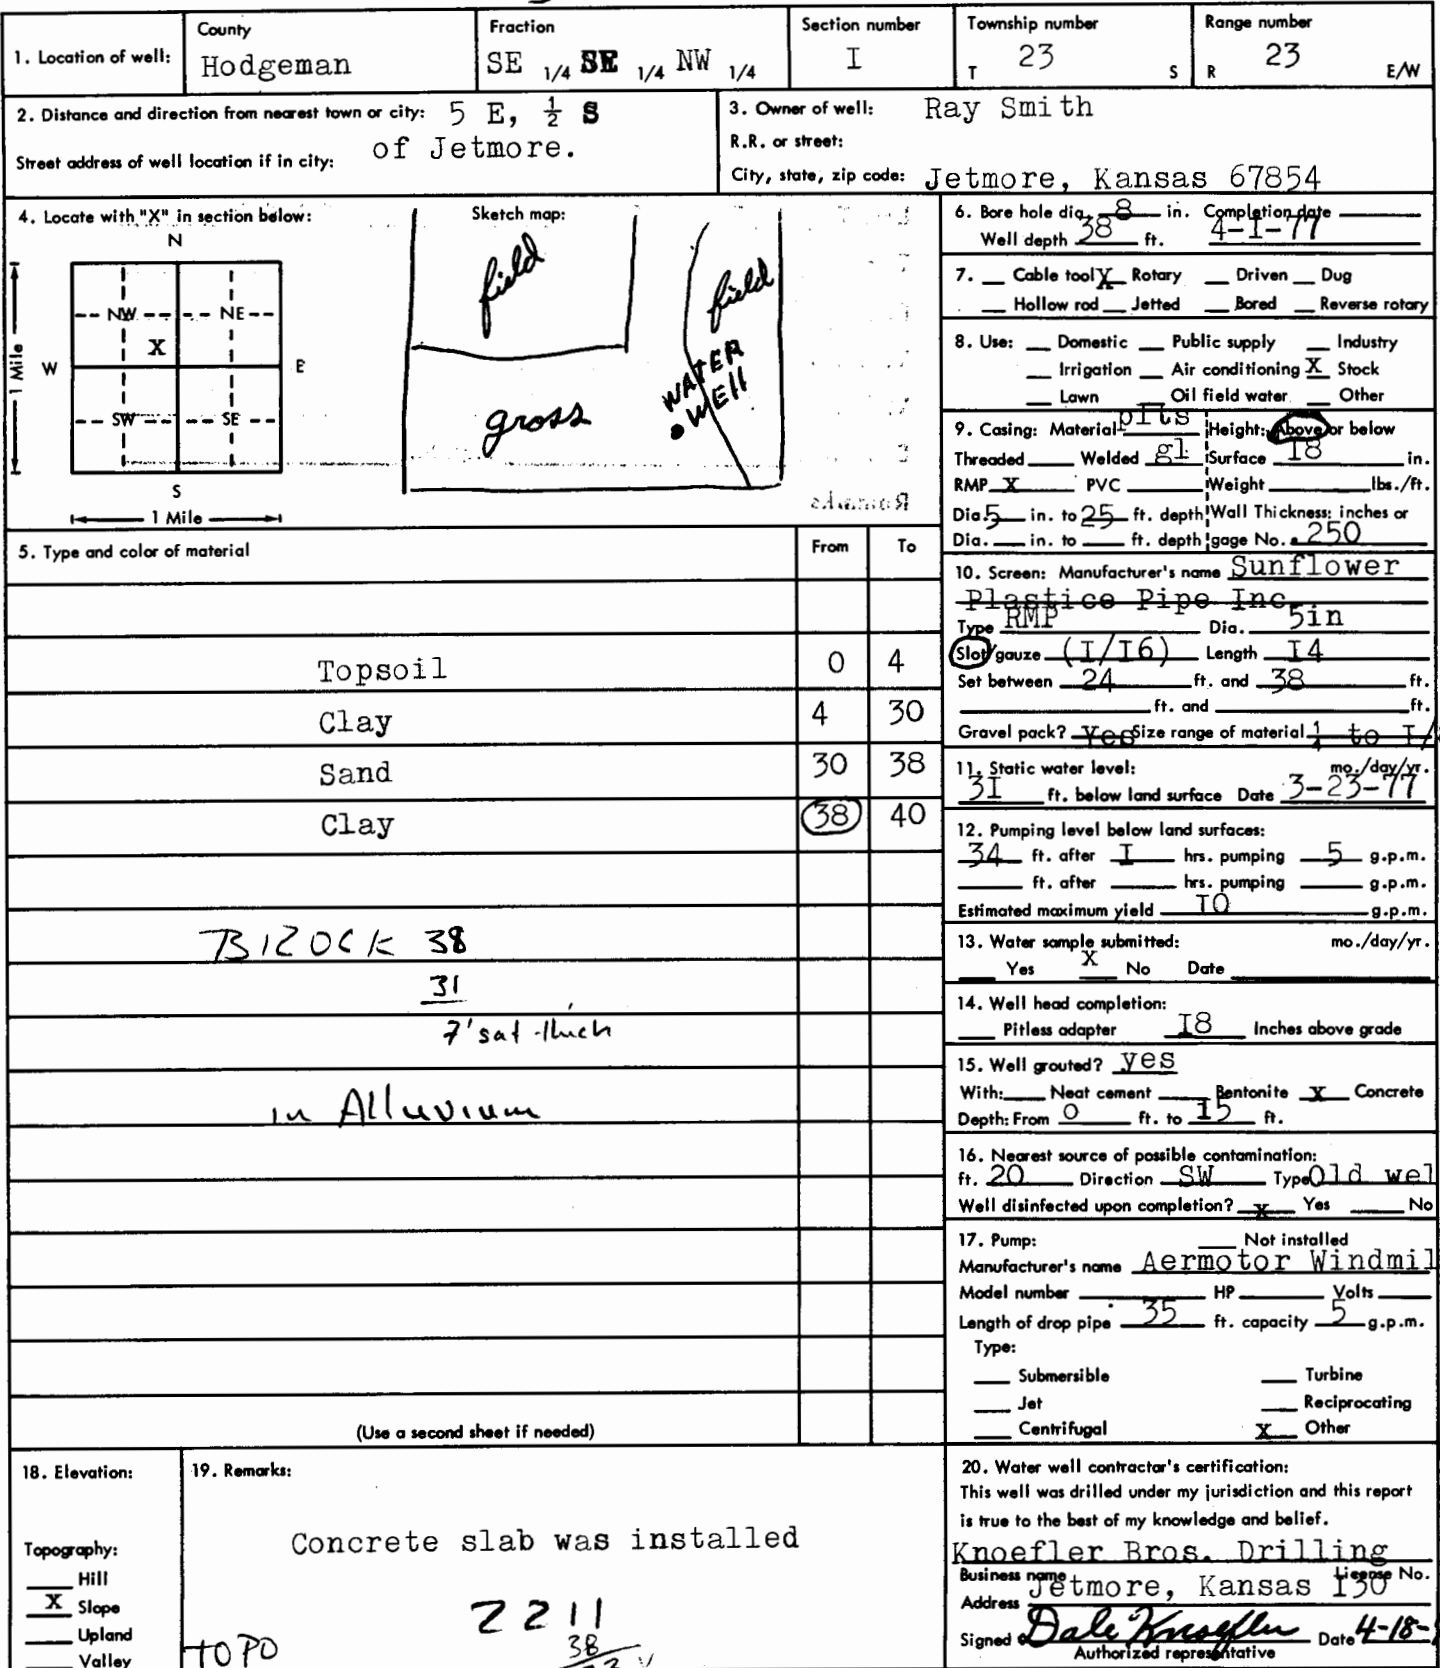 County
Fraction
Section number
Township number
Range number
1. Location of well:
Hodgeman
SE 1/4 SE 1/4 NW 1/4
I
T 23 S
R 23 E/W
2. Distance and direction from nearest town or city: 5 E, ½ S
of Jetmore.
Street address of well location if in city:
3. Owner of well: Ray Smith
R.R. or street:
City, state, zip code: Jetmore, Kansas 67854
4. Locate with "X" in section below:
N
NW NE
X
W E
SW SE
S
1 Mile
1 Mile
Sketch map:
field
field
WATER
WELL
gross
Remarks
5. Type and color of material From To
Topsoil 0 4
Clay 4 30
Sand 30 38
Clay 38 40
BROCK 38
31
7' sat thick
in Alluvium
(Use a second sheet if needed)
6. Bore hole dia. 8 in. Completion date
Well depth 38 ft. 4-I-77
7. Cable tool X Rotary Driven Dug
Hollow rod Jetted Bored Reverse rotary
8. Use: Domestic Public supply Industry
Irrigation Air conditioning X Stock
Lawn Oil field water Other
9. Casing: Material plts Height: Above or below
Threaded Welded gl Surface I8 in.
RMP X PVC Weight lbs./ft.
Dia. 5 in. to 25 ft. depth Wall Thickness: inches or
Dia. in. to ft. depth gage No. .250
10. Screen: Manufacturer's name Sunflower
Plastice Pipe Inc.
Type RMP Dia. 5in
Slot/gauze (I/I6) Length I4
Set between 24 ft. and 38 ft.
ft. and ft.
Gravel pack? Yes Size range of material ¼ to I/
11. Static water level: mo./day/yr.
3I ft. below land surface Date 3-23-77
12. Pumping level below land surfaces:
34 ft. after I hrs. pumping 5 g.p.m.
ft. after hrs. pumping g.p.m.
Estimated maximum yield I0 g.p.m.
13. Water sample submitted: mo./day/yr.
Yes X No Date
14. Well head completion:
Pitless adapter I8 Inches above grade
15. Well grouted? yes
With: Neat cement Bentonite X Concrete
Depth: From 0 ft. to I5 ft.
16. Nearest source of possible contamination:
ft. 20 Direction SW Type Old wel
Well disinfected upon completion? X Yes No
17. Pump: Not installed
Manufacturer's name Aermotor Windmil
Model number HP Volts
Length of drop pipe 35 ft. capacity 5 g.p.m.
Type:
Submersible Turbine
Jet Reciprocating
Centrifugal X Other
18. Elevation:
Topography:
Hill
X Slope
Upland
Valley
19. Remarks:
Concrete slab was installed
2211
38
TOPO
20. Water well contractor's certification:
This well was drilled under my jurisdiction and this report
is true to the best of my knowledge and belief.
Knoefler Bros. Drilling
Business name License No.
Address Jetmore, Kansas I30
Signed Dale Knoefler Date 4-18-
Authorized representative